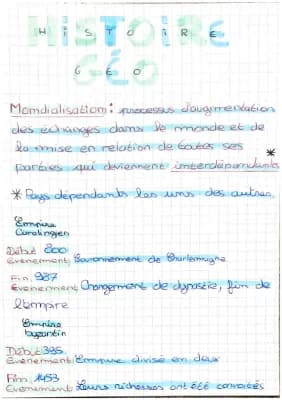 HISTOIRE
GÉO
Mondialisation : processus d'augmentation
des échanges dans le monde et de
la mise en relation de toutes ses
parties qui deviennent interdépendants *
* Pays dépendants les uns des autres.
Empire
Carolingien
Début 800
Evènement: Couronnement de Charlemagne
Fin: 987
Evenement: Changement de dynastie, fin de
l'empire
Empire
byzantin
Début: 395
Evènement: Empire divisé en deux
Fin: 1453
Evenement: Leurs richesses ont été